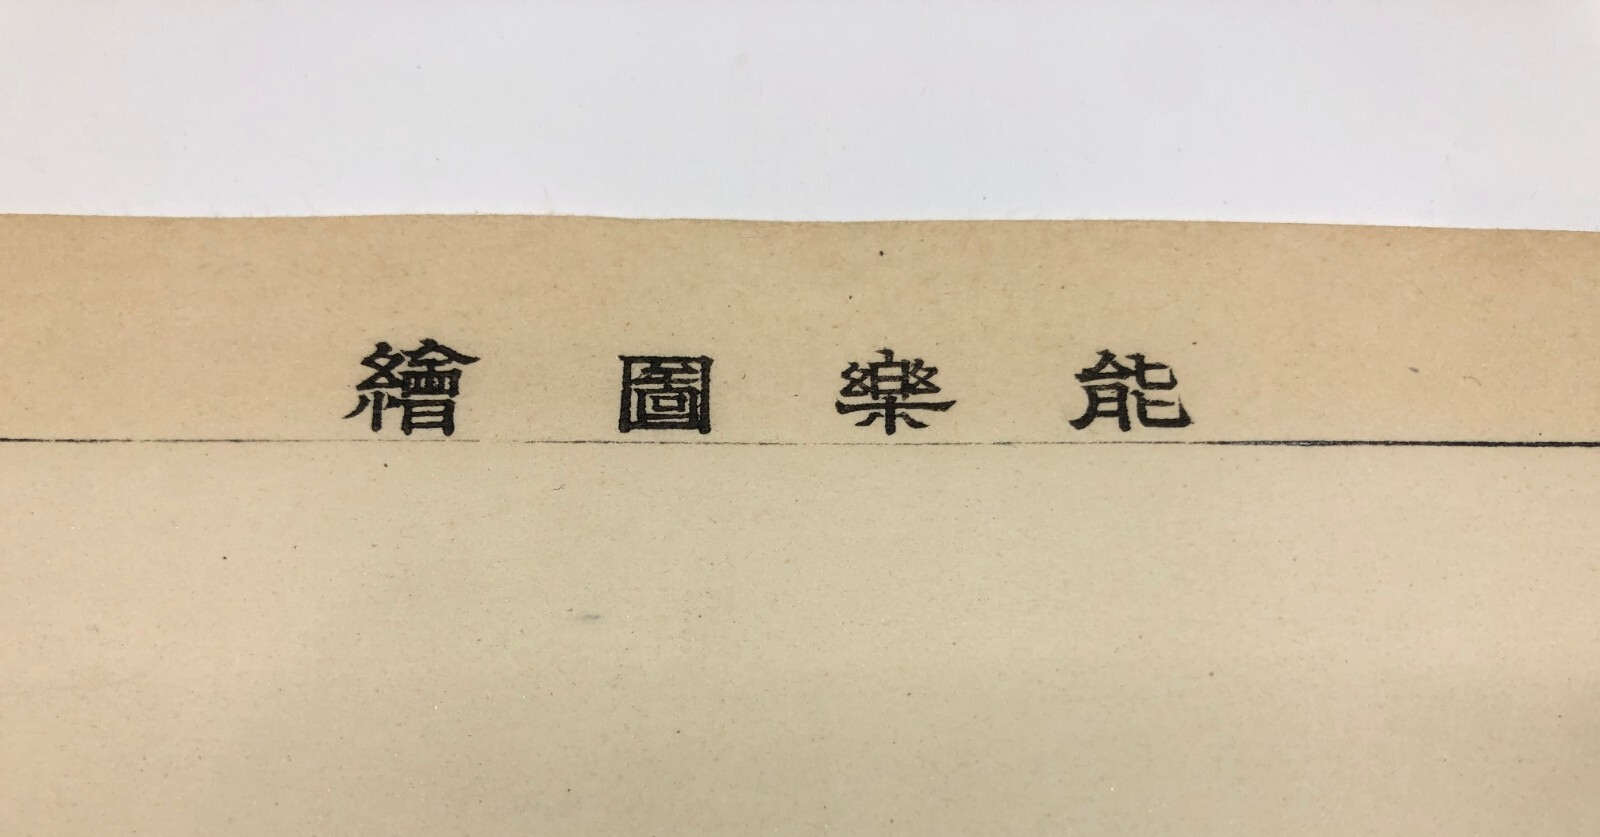 能樂圖繪